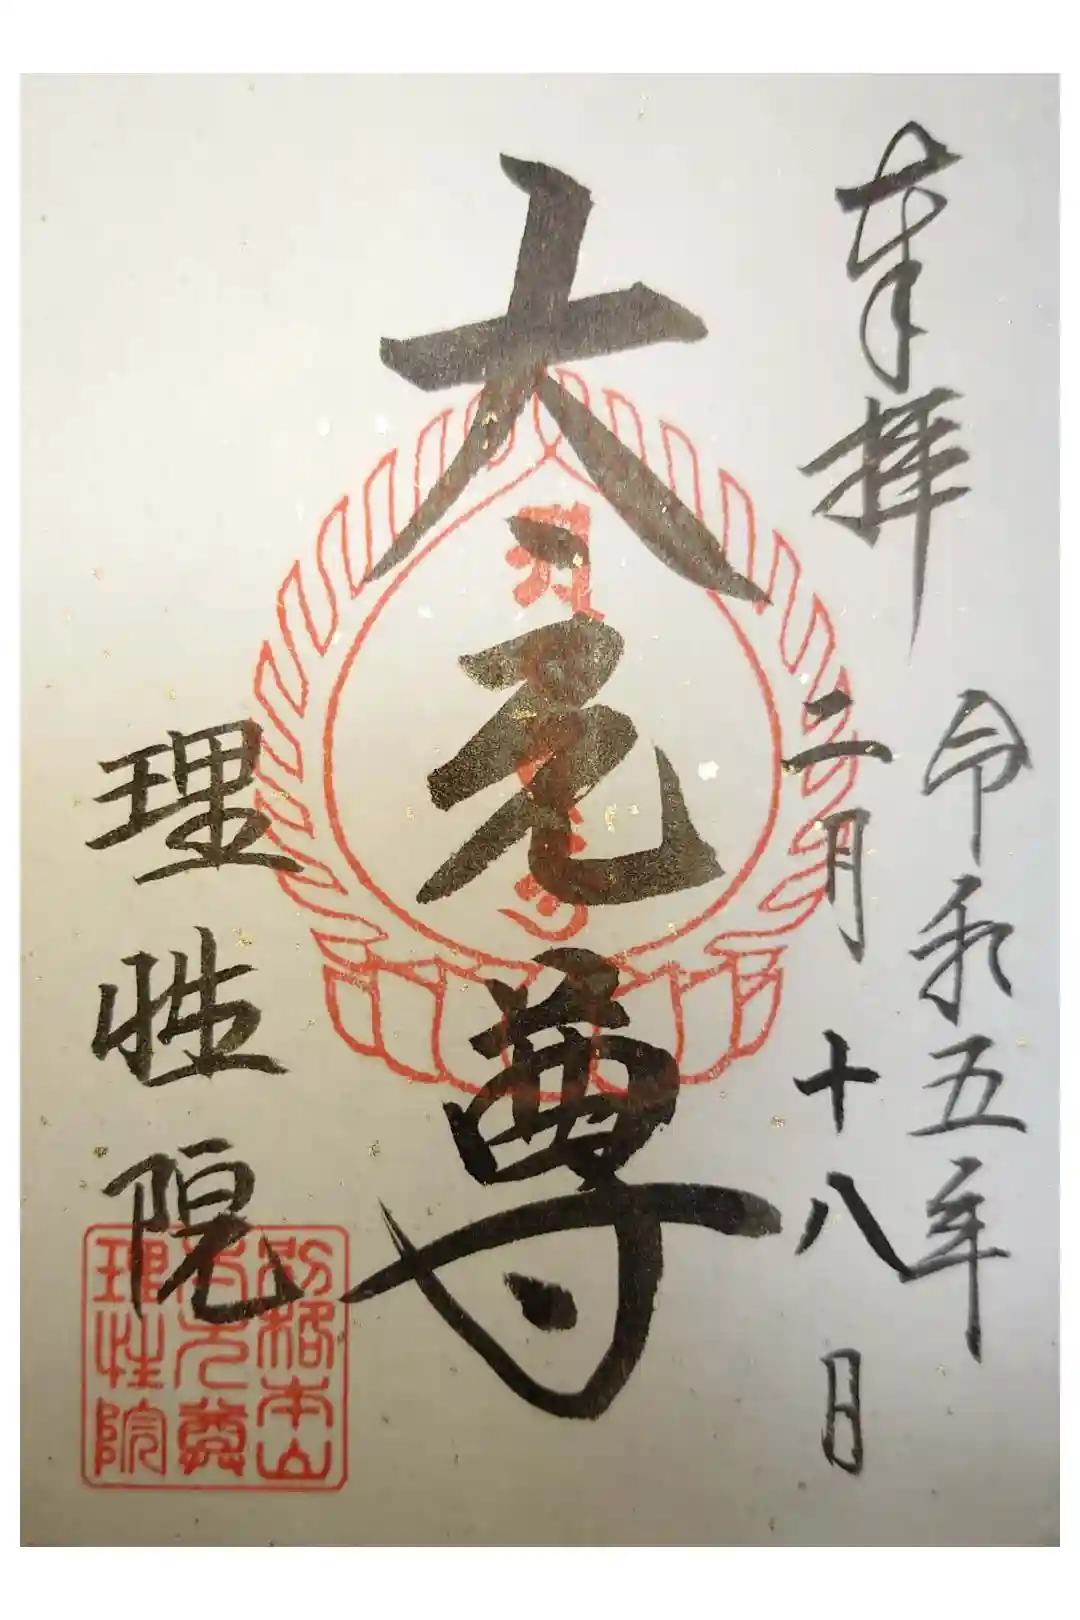 奉拝
令和五年
二月十八日
大元尊
理性院
別格本山
大元尊
理性院